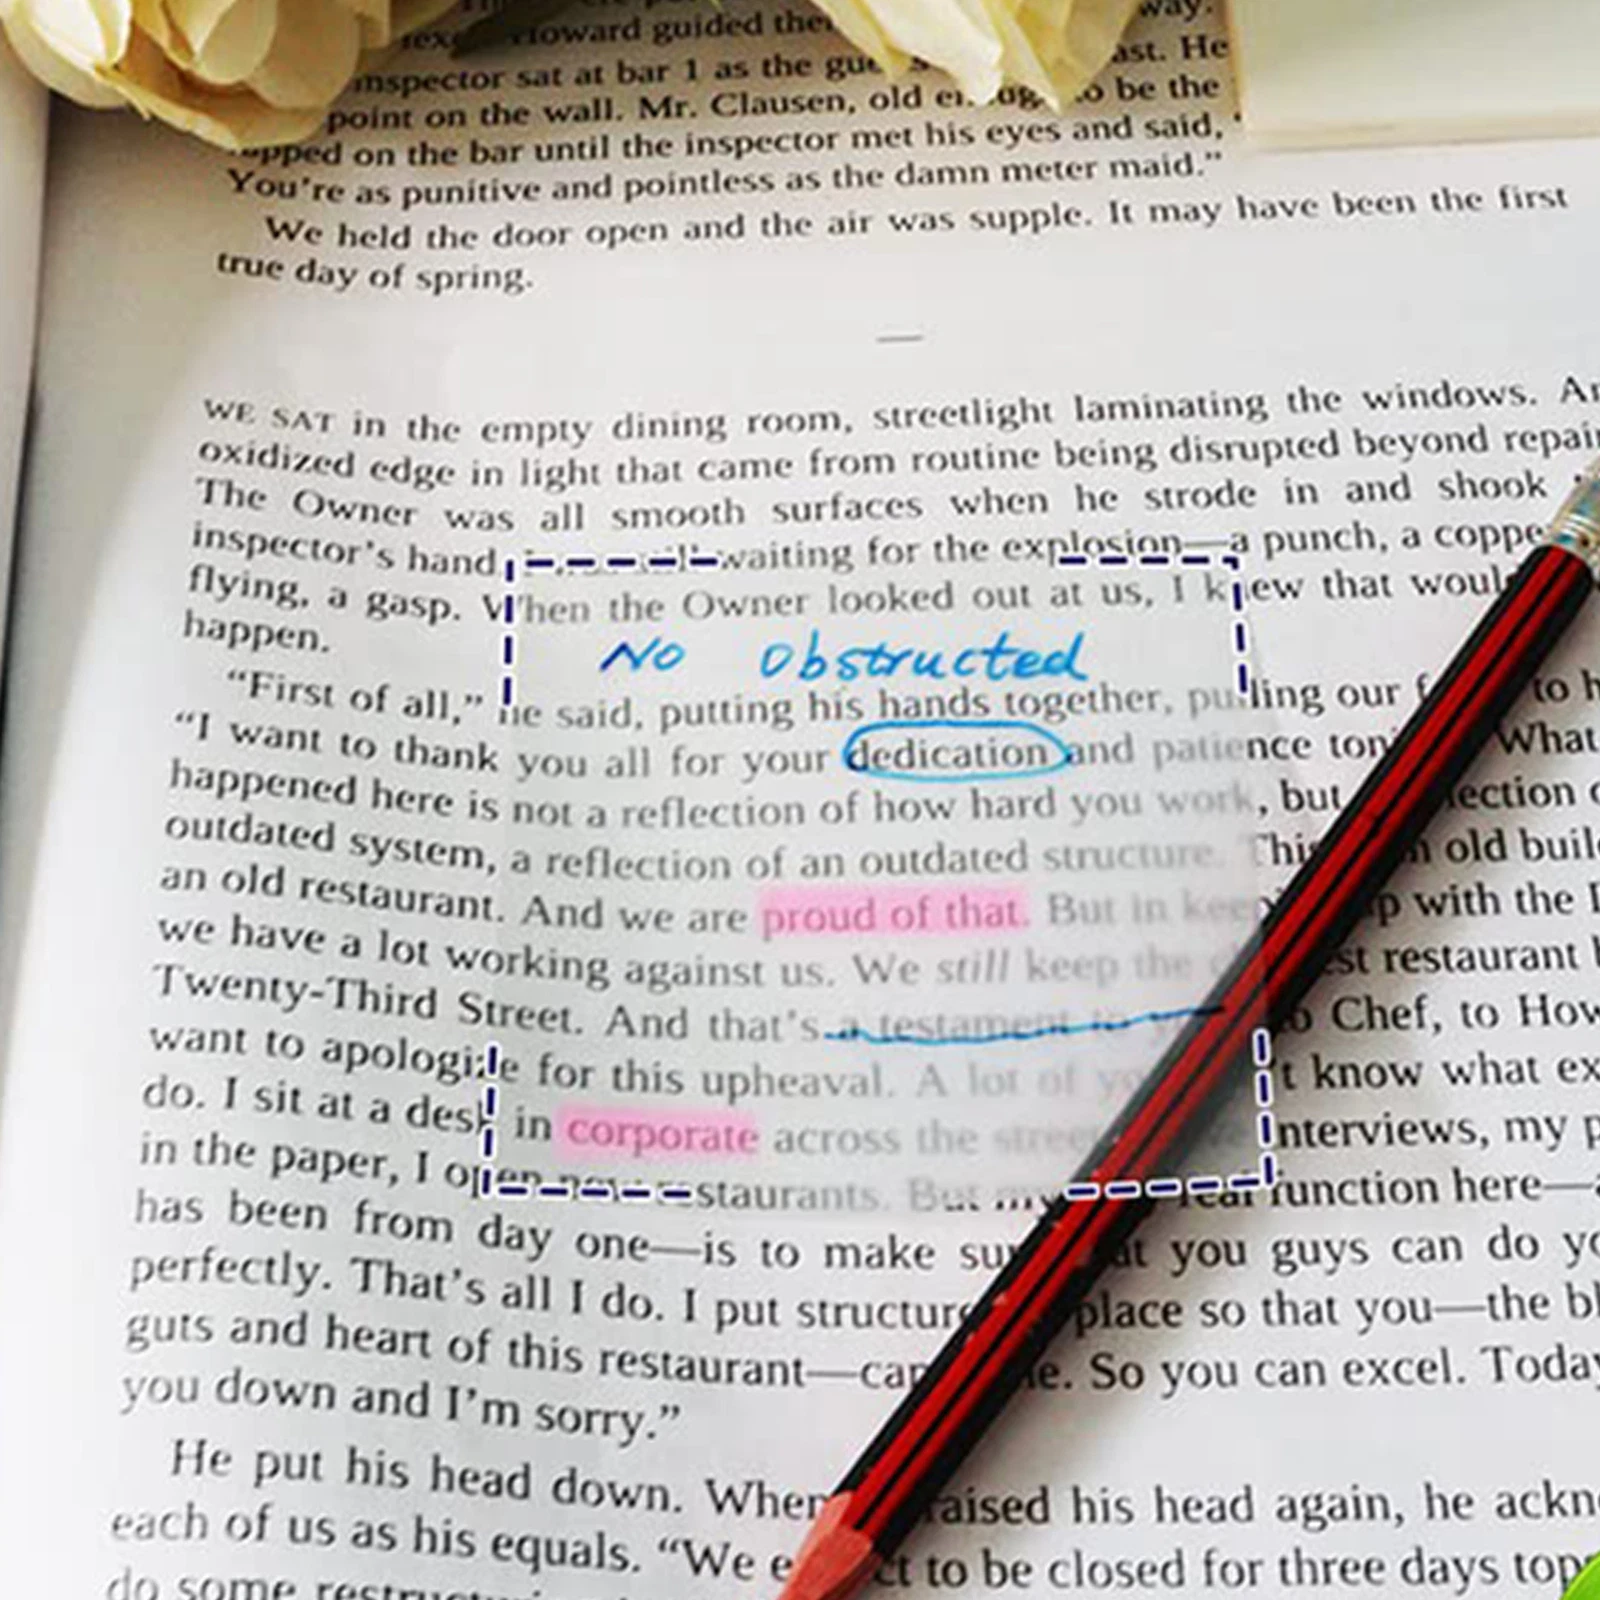 Howard guided
way.
inspector sat at bar 1 as the
He
point on the wall. Mr. Clausen, old to be the
on the bar until the inspector met his eyes and said,
You're as punitive and pointless as the damn meter maid."
We held the door open and the air was supple. It may have been the first
true day of spring.
—
WE SAT in the empty dining room, streetlight laminating the windows.
oxidized edge in light that came from routine being disrupted beyond
The Owner was all smooth surfaces when he strode in and shook
inspector's hand waiting for the explosion—a punch, a
flying, a gasp. When the Owner looked out at us, I knew that
happen.
No Obstructed
"First of all," he said, putting his hands together, pulling our to
"I want to thank you all for your dedication and patience What
happened here is not a reflection of how hard you work, but
outdated system, a reflection of an outdated structure. This old
an old restaurant. And we are proud of that. But in with the
we have a lot working against us. We still keep the restaurant
Twenty-Third Street. And that's a testament to Chef, to
want to apologize for this upheaval. A lot of know what
do. I sit at a desk in corporate across the street interviews, my
in the paper, I open new restaurants. But my real function here—
has been from day one—is to make you guys can do
perfectly. That's all I do. I put place so that you—the
guts and heart of this restaurant—can So you can excel.
you down and I'm sorry."
He put his head down. When raised his head again, he
each of us as his equals. "We to be closed for three days
do some